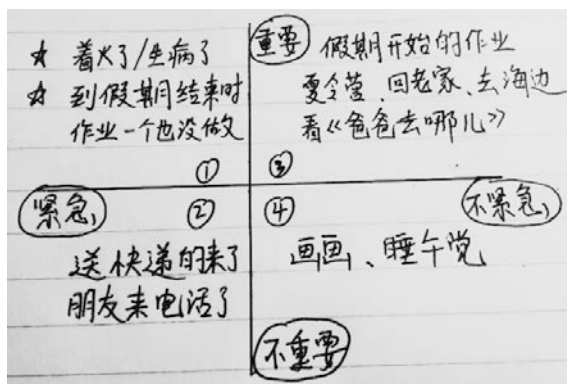 ☆ 着火了/生病了
☆ 到假期结束时
作业一个也没做
①
重要
假期开始的作业
夏令营、回老家、去海边
看《爸爸去哪儿》
③
紧急
②
送快递的来了
朋友来电话了
④
不紧急
画画、睡午觉
不重要